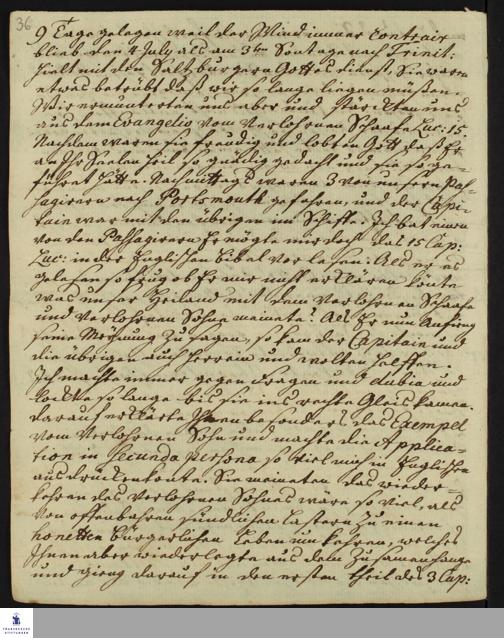 36
9 Tage gelegen weil der Wind immer contrair
blieb den 4 July als am 3ten Sontage nach Trinit:
hielt mit den Saltzburgern Gottesdienst, Sie waren
etwas betrübt daß wir so lange liegen müsten.
Wir ermunterten uns aber und stärckten uns
aus dem Evangelio vom Verlohrnen Schaafe Luc: 15.
Nachdem waren sie freudig und lobten Gott daß Er
an Ihr Seelen Heil so gnädig gedacht und sie so ge-
führet hätte. Nachmittags waren 3 von unsern Pas-
sagirern nach Portsmouth gefahren, und der Capi-
tain war mit den übrigen im Schiffe. Ich bat einen
von den Passagirern Er mögte mir doch das 15 Cap:
Luc: in der Englischen Bibel vorlesen: Als er es
gelesen so frug ob Er mir nicht erklären könte
was unser Heiland mit dem Verlohrnen Schaafe
und Verlohrnen Sohne meinete? Als Er nun anfieng
seine Meinung zu sagen, so kam der Capitain und
die übrigen auch herein und wolten helffen.
Ich machte immer gegen Fragen und dubia und
lockte so lange bis sie ins rechte Gleis kamen.
darauf erklärte Ihnen besonders das Exempel
vom Verlohrnen Sohn und machte die Applica-
tion in secunda persona so viel mich in Englischen
ausdrücken konte. Sie meineten das wieder-
kehren des Verlohrnen Sohnes wäre so viel, als
von offenbahren sündlichen Lastern zu einen
honetten bürgerlichen Leben umkehren, welches
Ihnen aber wiederlegte aus dem Zusamenhange
und gieng darauf in den ersten theil des 3 Cap:
FRANCKESCHE
STIFTUNGEN